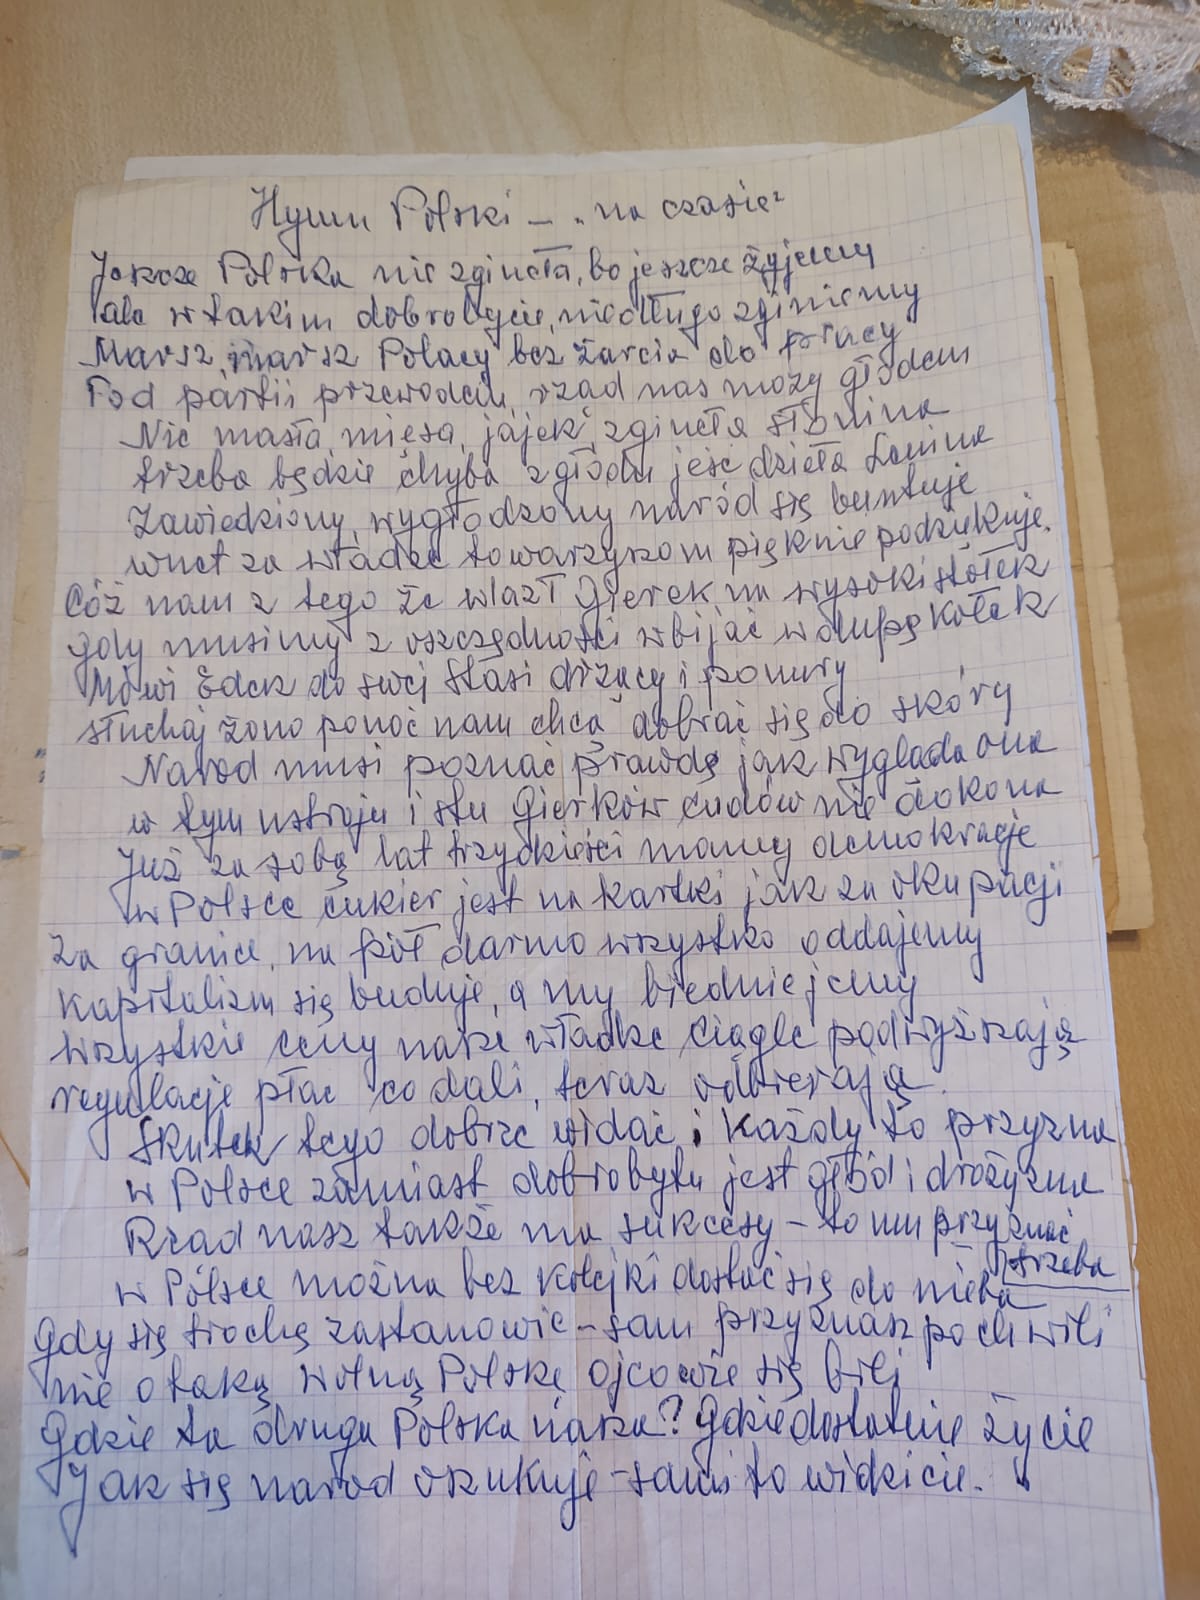 Hymn Polski – „na czasie"
Jeszcze Polska nie zginęła, bo jeszcze żyjemy
ale w takim dobrobycie, niedługo zginiemy
Marsz, marsz Polacy bez żarcia do pracy
Pod partii przewodem, rząd nas moży głodem
Nie masła, mięsa, jajek, zginęła słonina
trzeba będzie chyba z głodu jeść dzieła Lenina
Zawiedziony, wygłodzony naród się buntuje
wnet za władzę towarzyszom pięknie podziękuje.
Cóż nam z tego że wlazł Gierek na wysoki stołek
gdy musimy z oszczędności wbijać w dupę kołek
Mówi Edek do swej Stasi drżący i ponury
słuchaj żono ponoć nam chcą dobrać się do skóry
Naród musi poznać prawdę jak wygląda ona
w tym ustroju i stu Gierków cudów nie dokona
Już za sobą lat trzydzieści mamy demokracje
w Polsce cukier jest na kartki jak za okupacji
Za granicę, na pół darmo wszystko oddajemy
kapitalizm się buduje, a my biedniejemy
Wszystkie ceny nasze władze ciągle podwyższają
regulacje płac co dali, teraz odbierają.
Skutek tego dobrze widać i każdy to przyzna
w Polsce zamiast dobrobytu jest głód i drożyzna
Rząd nasz także ma sukcesy – to mu przyznać
trzeba
w Polsce można bez kolejki dostać się do nieba
Gdy się trochę zastanowić – sam przyznasz po chwili
nie o taką wolną Polskę ojcowie się bili
Gdzie ta druga Polska nasza? Gdzie dostatnie życie
Jak się naród oszukuje – sami to widzicie.